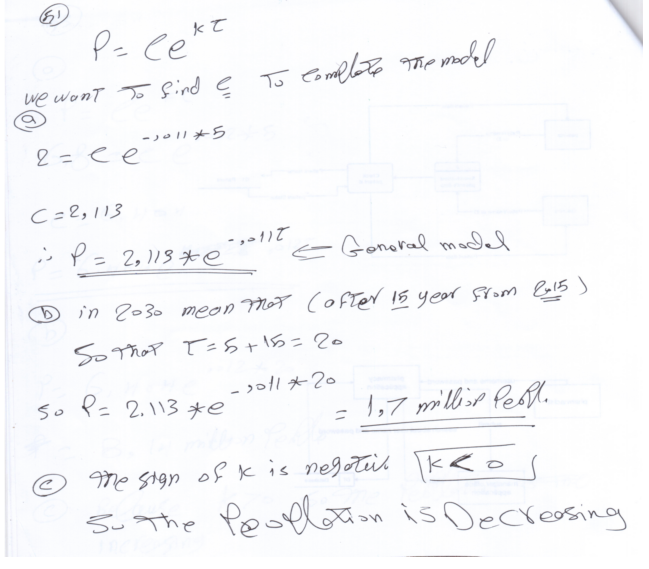 51
P = Ce^kt
we want To find C To complete the model
a
2 = C e^-,011*5
C = 2,113
∴ P = 2,113 * e^-,011t ⇐ General model
b in 2030 mean that (after 15 year from 2015)
So that t = 5 + 15 = 20
so P = 2.113 * e^-,011*20 = 1,7 million Peopl.
c The sign of k is negative k < 0
So The Peoplation is Decreasing